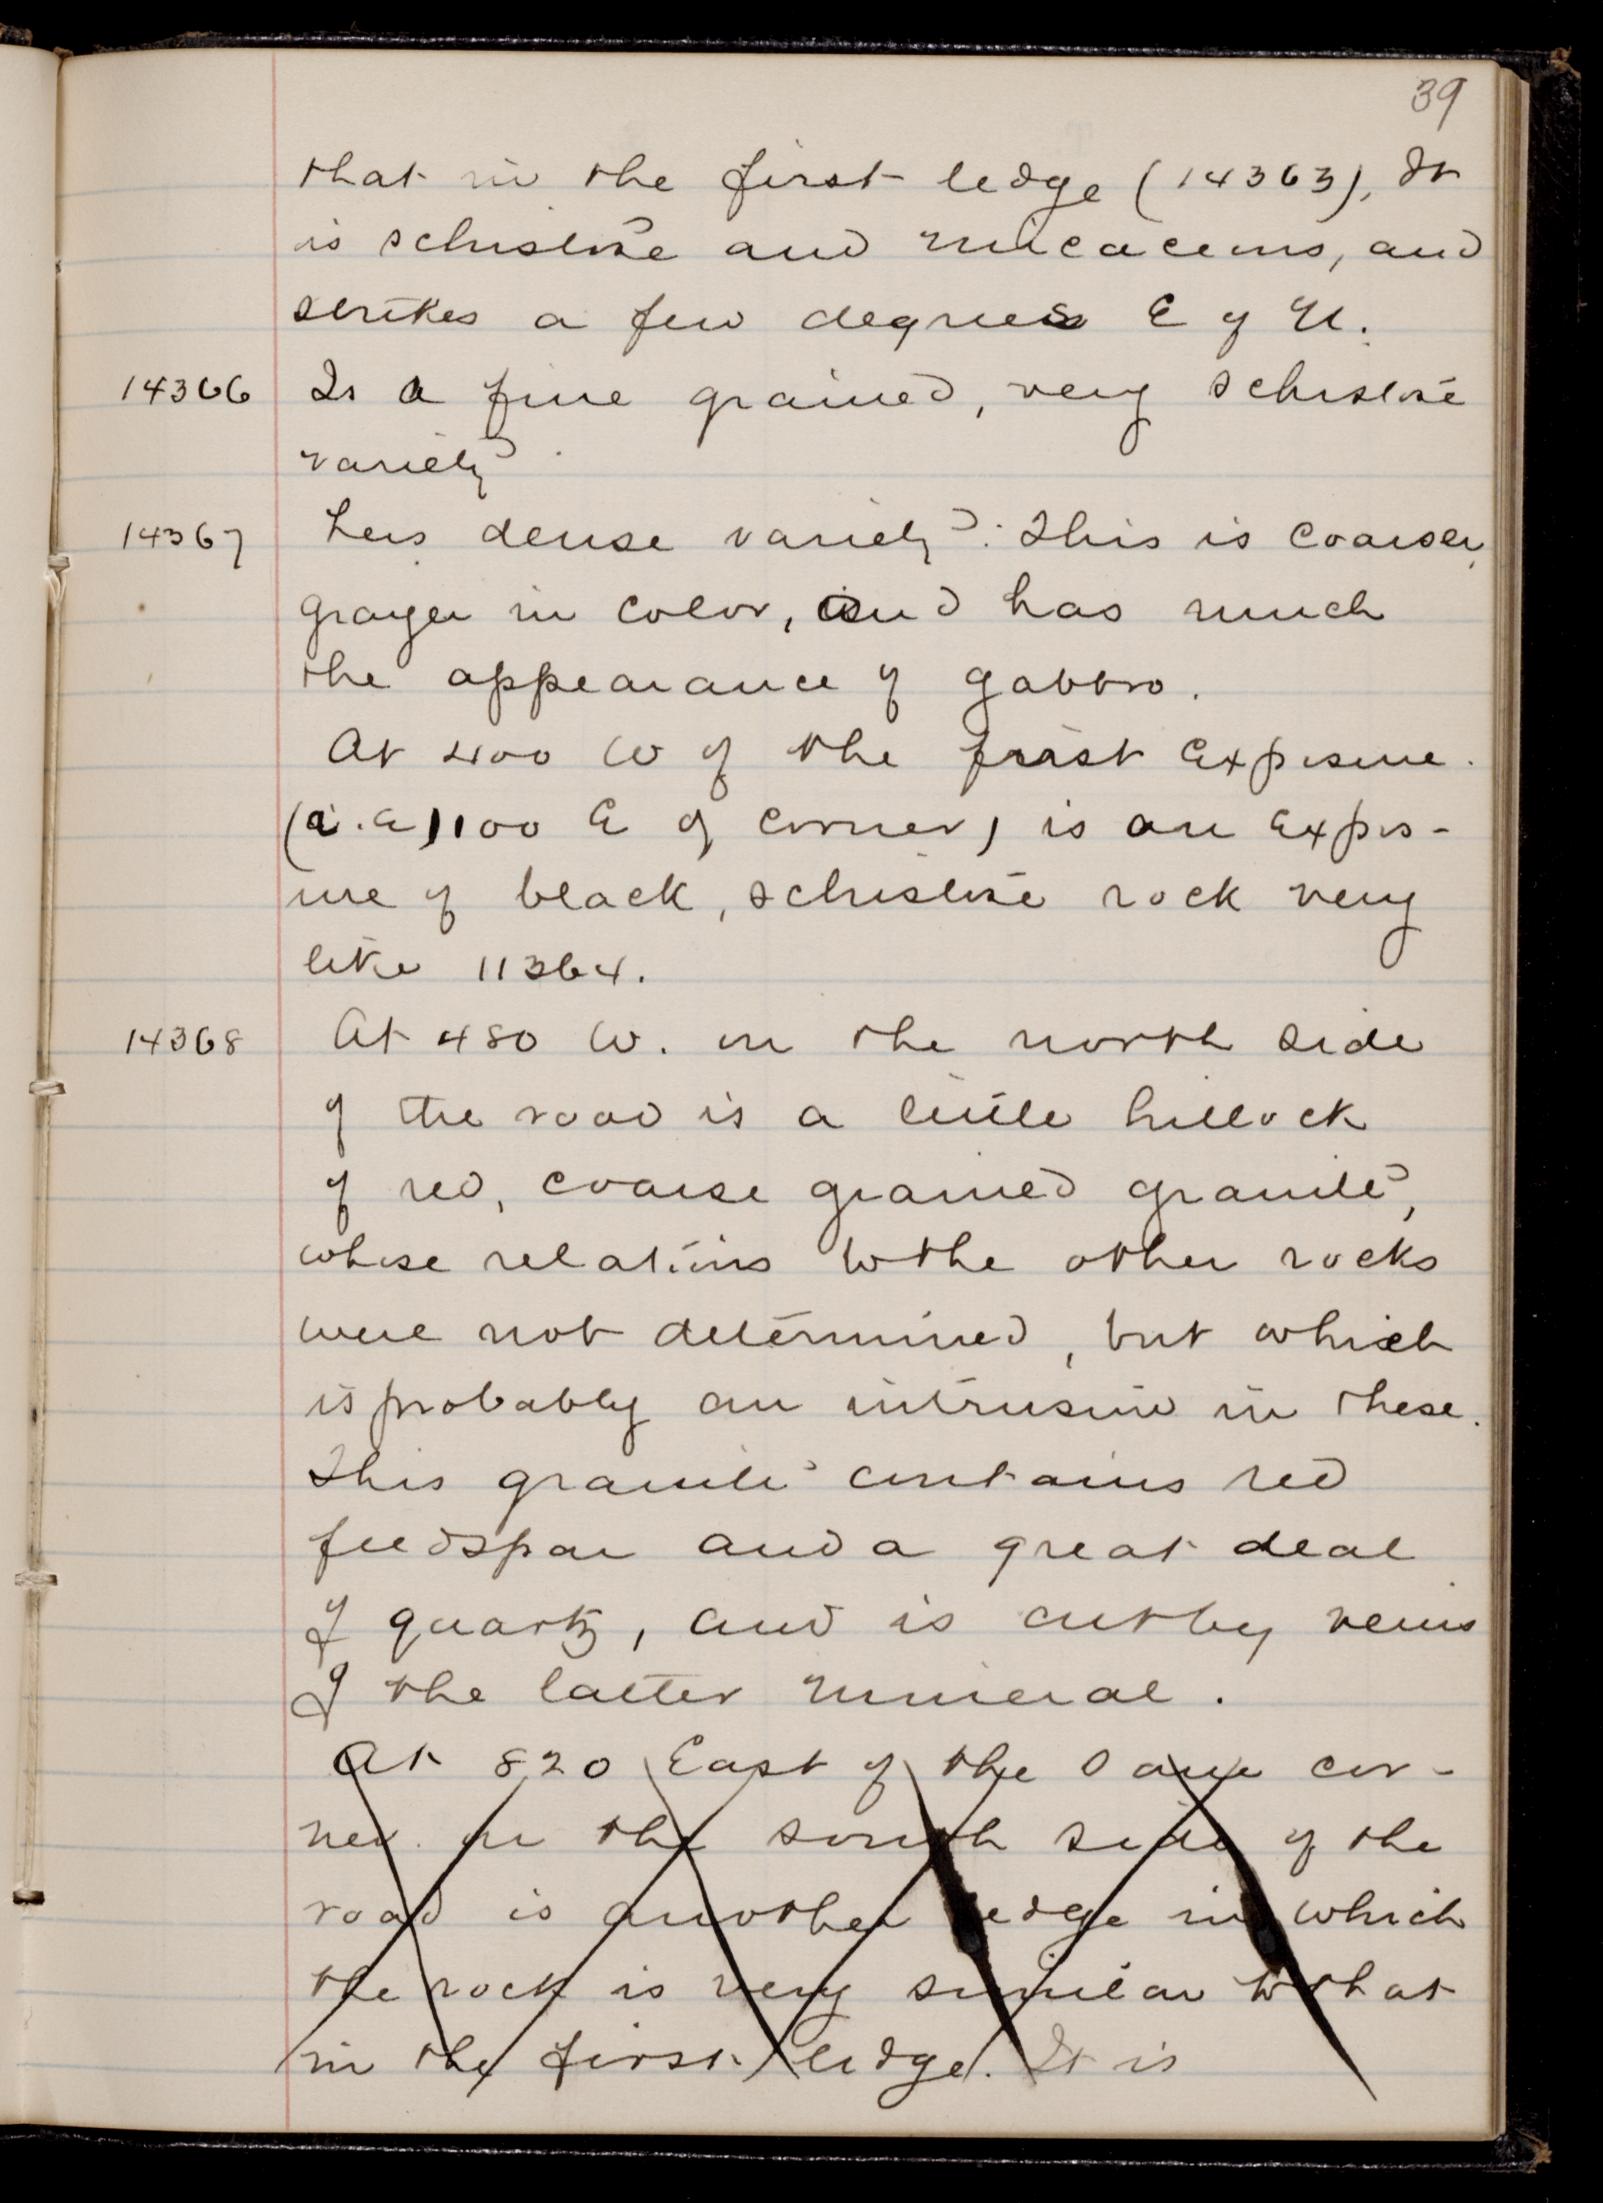 39
that in the first ledge (14363). It
is schistose and micaceous, and
strikes a few degrees E of N.
14366 Is a fine grained, very schistose
variety.
14367 Less dense variety. This is coarser,
grayer in color, and has much
the appearance of gabbro.
At 400 W of the first exposure.
(i.e. 100 E of corner) is an expos-
ure of black, schistose rock very
like 11364.
14368 At 480 W. on the north side
of the road is a little hillock
of red, coarse grained granite,
whose relations to the other rocks
were not determined, but which
is probably an intrusive in these.
This granite contains red
feldspar and a great deal
of quartz, and is cut by veins
of the latter mineral.
At 820 East of the same cor-
ner on the south side of the
road is another ledge in which
the rock is very similar to that
in the first ledge. It is